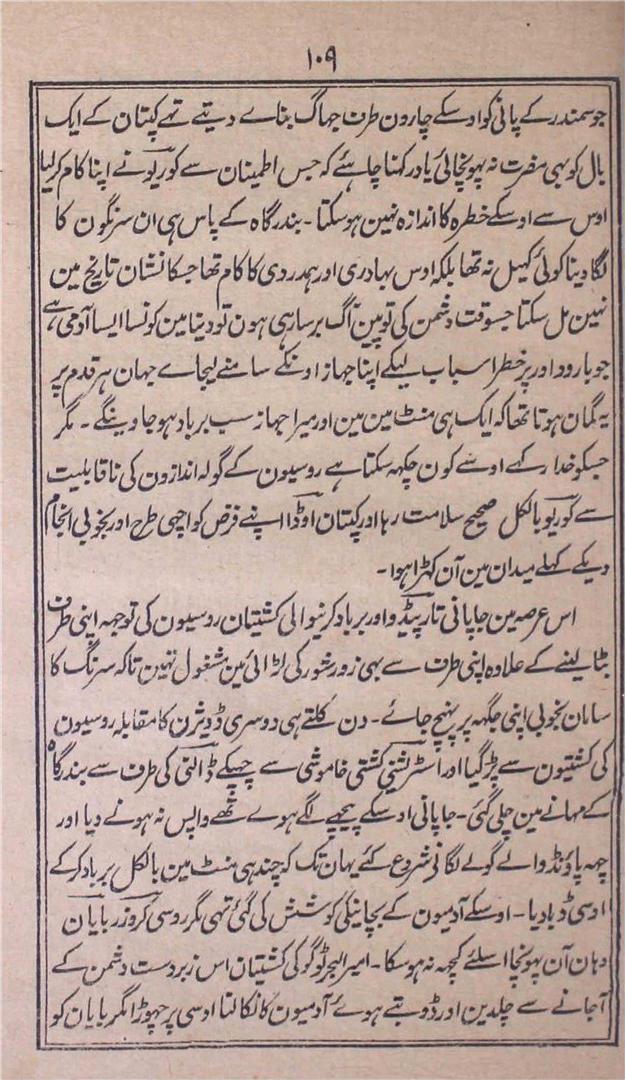 ۱۰۹
جو سمندر کے پانی کو اوسکے چارون طرف جہاگ بناے دیتے تہے کپتان کے ایک
بال کو بہی مضرت نہ پہونچائی یاد رکہنا چاہئے کہ جس اطمینان سے کوریو نے اپنا کام کرلیا
اوس سے اوسکے خطرہ کا اندازہ نہین ہوسکتا ۔ بندرگاہ کے پاس ہی ان سرنگون کا
لگا دینا کوئی کہیل نہ تھا بلکہ اوس بہادری اور ہمدردی کا کام تھا جسکا نشان تاریخ مین
نہین مل سکتا جسوقت دشمن کی توپین آگ برسا رہی ہون تو دنیا مین کونسا ایسا آدمی ہے
جو بارود اور پر خطر اسباب لیکے اپنا جہاز اونکے سامنے لیجاے جہان ہر قدم پر
یہ گمان ہوتا تھا کہ ایک ہی منٹ مین مین اور میرا جہاز سب برباد ہوجاوینگے ۔ مگر
جسکو خدا رکہے اوسے کون چکہہ سکتا ہے روسیون کے گولہ اندازون کی ناقابلیت
سے کوریو بالکل صحیح سلامت رہا اور کپتان اوڈا اپنے فرض کو اچہی طرح اور بخوبی انجام
دیکے کہلے میدان مین آن کہڑا ہوا ۔
اس عرصہ مین جاپانی تارپیڈو اور برباد کرنیوالی کشتیان روسیون کی توجہ اپنی طرف
بٹا لینے کے علاوہ اپنی طرف سے بہی زور شور کی لڑائی مین مشغول تہین تاکہ سرنگ کا
سامان بخوبی اپنی جگہہ پر پہنچ جائے ۔ دن نکلتے ہی دوسری ڈویژن کا مقابلہ روسیون
کی کشتیون سے پڑ گیا اور اسٹرشنی کشتی خاموشی سے چپکے ڈالنی کی طرف سے بندرگاہ
کے مہانے مین چلی گئی ۔ جاپانی اوسکے پیچہے لگے ہوے تھے واپس نہ ہونے دیا اور
چہہ پاؤنڈ والے گولے لگانے شروع کئے یہان تک کہ چند ہی منٹ مین بالکل برباد کرکے
اوسی ڈبا دیا ۔ اوسکے آدمیون کے بچانیکی کوشش کی گئی تہی مگر روسی کروزر بایان
وہان آن پہونچا اسلئے کچہہ نہ ہوسکا ۔ امیر البحر ٹوگو کی کشتیان اس زبردست دشمن کے
آجانے سے چلدین اور ڈوبتے ہوئے آدمیون کا نکالنا اوسی پر چہوڑا مگر بایان کو